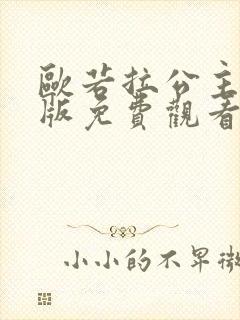 歐若拉公主
版免費觀看
小小的不早微